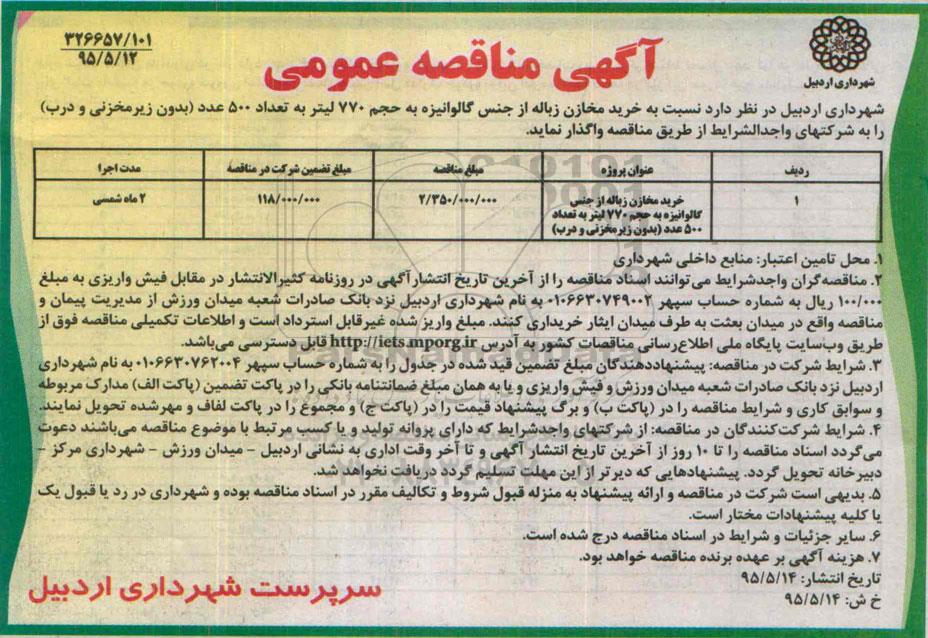 ۳۲۶۶۵۷/۱۰۱
۹۵/۵/۱۲
شهرداری اردبیل
آگهی مناقصه عمومی
شهرداری اردبیل در نظر دارد نسبت به خرید مخازن زباله از جنس گالوانیزه به حجم ۷۷۰ لیتر به تعداد ۵۰۰ عدد (بدون زیرمخزنی و درب)
را به شرکتهای واجدالشرایط از طریق مناقصه واگذار نماید.
ردیف عنوان پروژه مبلغ مناقصه مبلغ تضمین شرکت در مناقصه مدت اجرا
۱ خرید مخازن زباله از جنس ۲/۳۵۰/۰۰۰/۰۰۰ ۱۱۸/۰۰۰/۰۰۰ ۲ ماه شمسی
گالوانیزه به حجم ۷۷۰ لیتر به تعداد
۵۰۰ عدد (بدون زیرمخزنی و درب)
۱. محل تامین اعتبار: منابع داخلی شهرداری
۲. مناقصه‌گران واجدشرایط می‌توانند اسناد مناقصه را از آخرین تاریخ انتشارآگهی در روزنامه کثیرالانتشار در مقابل فیش واریزی به مبلغ
۱۰۰/۰۰۰ ریال به شماره حساب سپهر ۰۱۰۶۶۳۰۷۴۹۰۰۲ به نام شهرداری اردبیل نزد بانک صادرات شعبه میدان ورزش از مدیریت پیمان و
مناقصه واقع در میدان بعثت به طرف میدان ایثار خریداری کنند. مبلغ واریز شده غیرقابل استرداد است و اطلاعات تکمیلی مناقصه فوق از
طریق وب‌سایت پایگاه ملی اطلاع‌رسانی مناقصات کشور به آدرس http://iets.mporg.ir قابل دسترسی می‌باشد.
۳. شرایط شرکت در مناقصه: پیشنهاددهندگان مبلغ تضمین قید شده در جدول را به شماره حساب سپهر ۰۱۰۶۶۳۰۷۶۲۰۰۴ به نام شهرداری
اردبیل نزد بانک صادرات شعبه میدان ورزش و فیش واریزی و یا به همان مبلغ ضمانتنامه بانکی را در پاکت تضمین (پاکت الف) مدارک مربوطه
و سوابق کاری و شرایط مناقصه را در (پاکت ب) و برگ پیشنهاد قیمت را در (پاکت ج) و مجموع را در پاکت لفاف و مهرشده تحویل نمایند.
۴. شرایط شرکت‌کنندگان در مناقصه: از شرکتهای واجدشرایط که دارای پروانه تولید و یا کسب مرتبط با موضوع مناقصه می‌باشند دعوت
می‌گردد اسناد مناقصه را تا ۱۰ روز از آخرین تاریخ انتشار آگهی و تا آخر وقت اداری به نشانی اردبیل - میدان ورزش - شهرداری مرکز -
دبیرخانه تحویل گردد. پیشنهادهایی که دیرتر از این مهلت تسلیم گردد دریافت نخواهد شد.
۵. بدیهی است شرکت در مناقصه و ارائه پیشنهاد به منزله قبول شروط و تکالیف مقرر در اسناد مناقصه بوده و شهرداری در رد یا قبول یک
یا کلیه پیشنهادات مختار است.
۶. سایر جزئیات و شرایط در اسناد مناقصه درج شده است.
۷. هزینه آگهی بر عهده برنده مناقصه خواهد بود.
تاریخ انتشار: ۹۵/۵/۱۴
خ ش: ۹۵/۵/۱۴
سرپرست شهرداری اردبیل